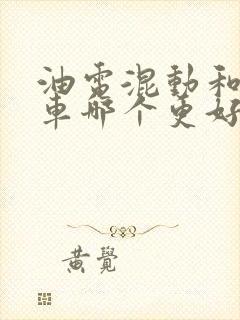 油電混動和
車哪个更好
黄覺